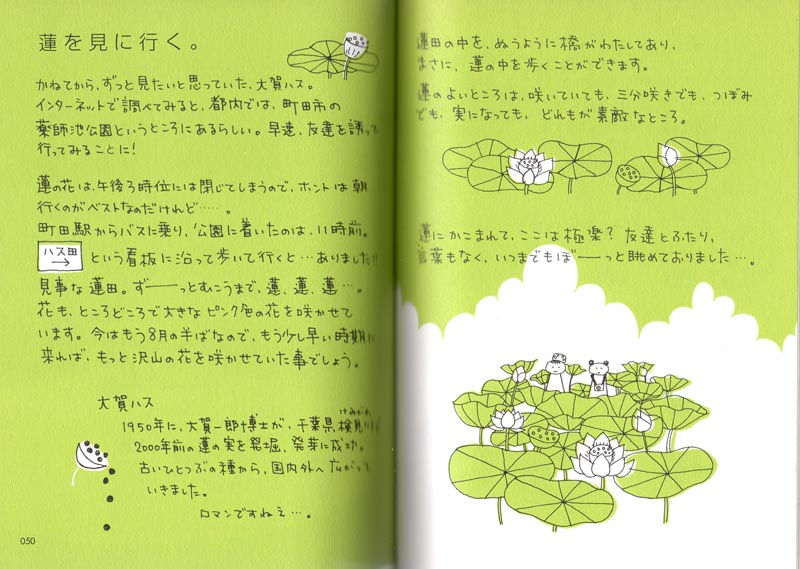 蓮を見に行く。
かねてから、ずっと見たいと思っていた、大賀ハス。
インターネットで調べてみると、都内では、町田市の
薬師池公園というところにあるらしい。早速、友達を誘って
行ってみることに!
蓮の花は、午後3時位には閉じてしまうので、ホントは朝
行くのがベストなのだけれど……。
町田駅からバスに乗り、公園に着いたのは、11時前。
ハス田
→
という看板に沿って歩いて行くと…ありました!!
見事な蓮田。ず――っとむこうまで、蓮、蓮、蓮…。
花も、ところどころで大きなピンク色の花を咲かせて
います。今はもう8月の半ばなので、もう少し早い時期に
来れば、もっと沢山の花を咲かせていた事でしょう。
大賀ハス
1950年に、大賀一郎博士が、千葉県検見川
2000年前の蓮の実を発掘、発芽に成功。
古いひとつぶの種から、国内外へ広がって
いきました。
ロマンですねぇ…。
050
蓮田の中を、ぬうように橋がわたしてあり、
まさに、蓮の中を歩くことができます。
蓮のよいところは、咲いていても、三分咲きでも、つぼみ
でも、実になっても、どれもが素敵なところ。
蓮にかこまれて、ここは極楽?友達とふたり、
言葉もなく、いつまでもぼ――っと眺めておりました…。